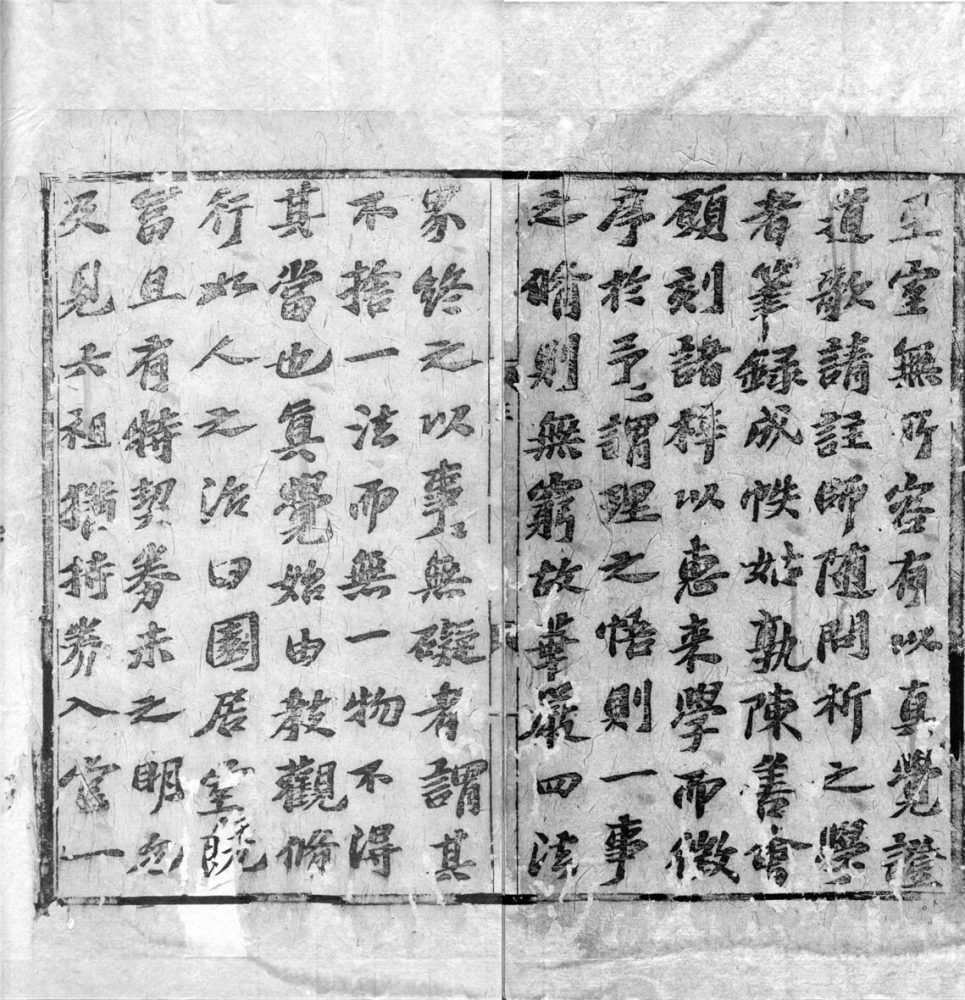 丈室無所容有以真覺證
道歌請註師随問析之學
者筆録成帙姑孰陳善
願刻諸梓以惠来學而徴
序於予予謂理之悟則一事
之脩則無窮故華嚴四法
界終之以事事無礙者謂其
不捨一法而無一物不得
其當也真覺始由教觀脩
行如人之治田園居室饒
富且有特契券未之明尔
及見六祖猶持券入官一